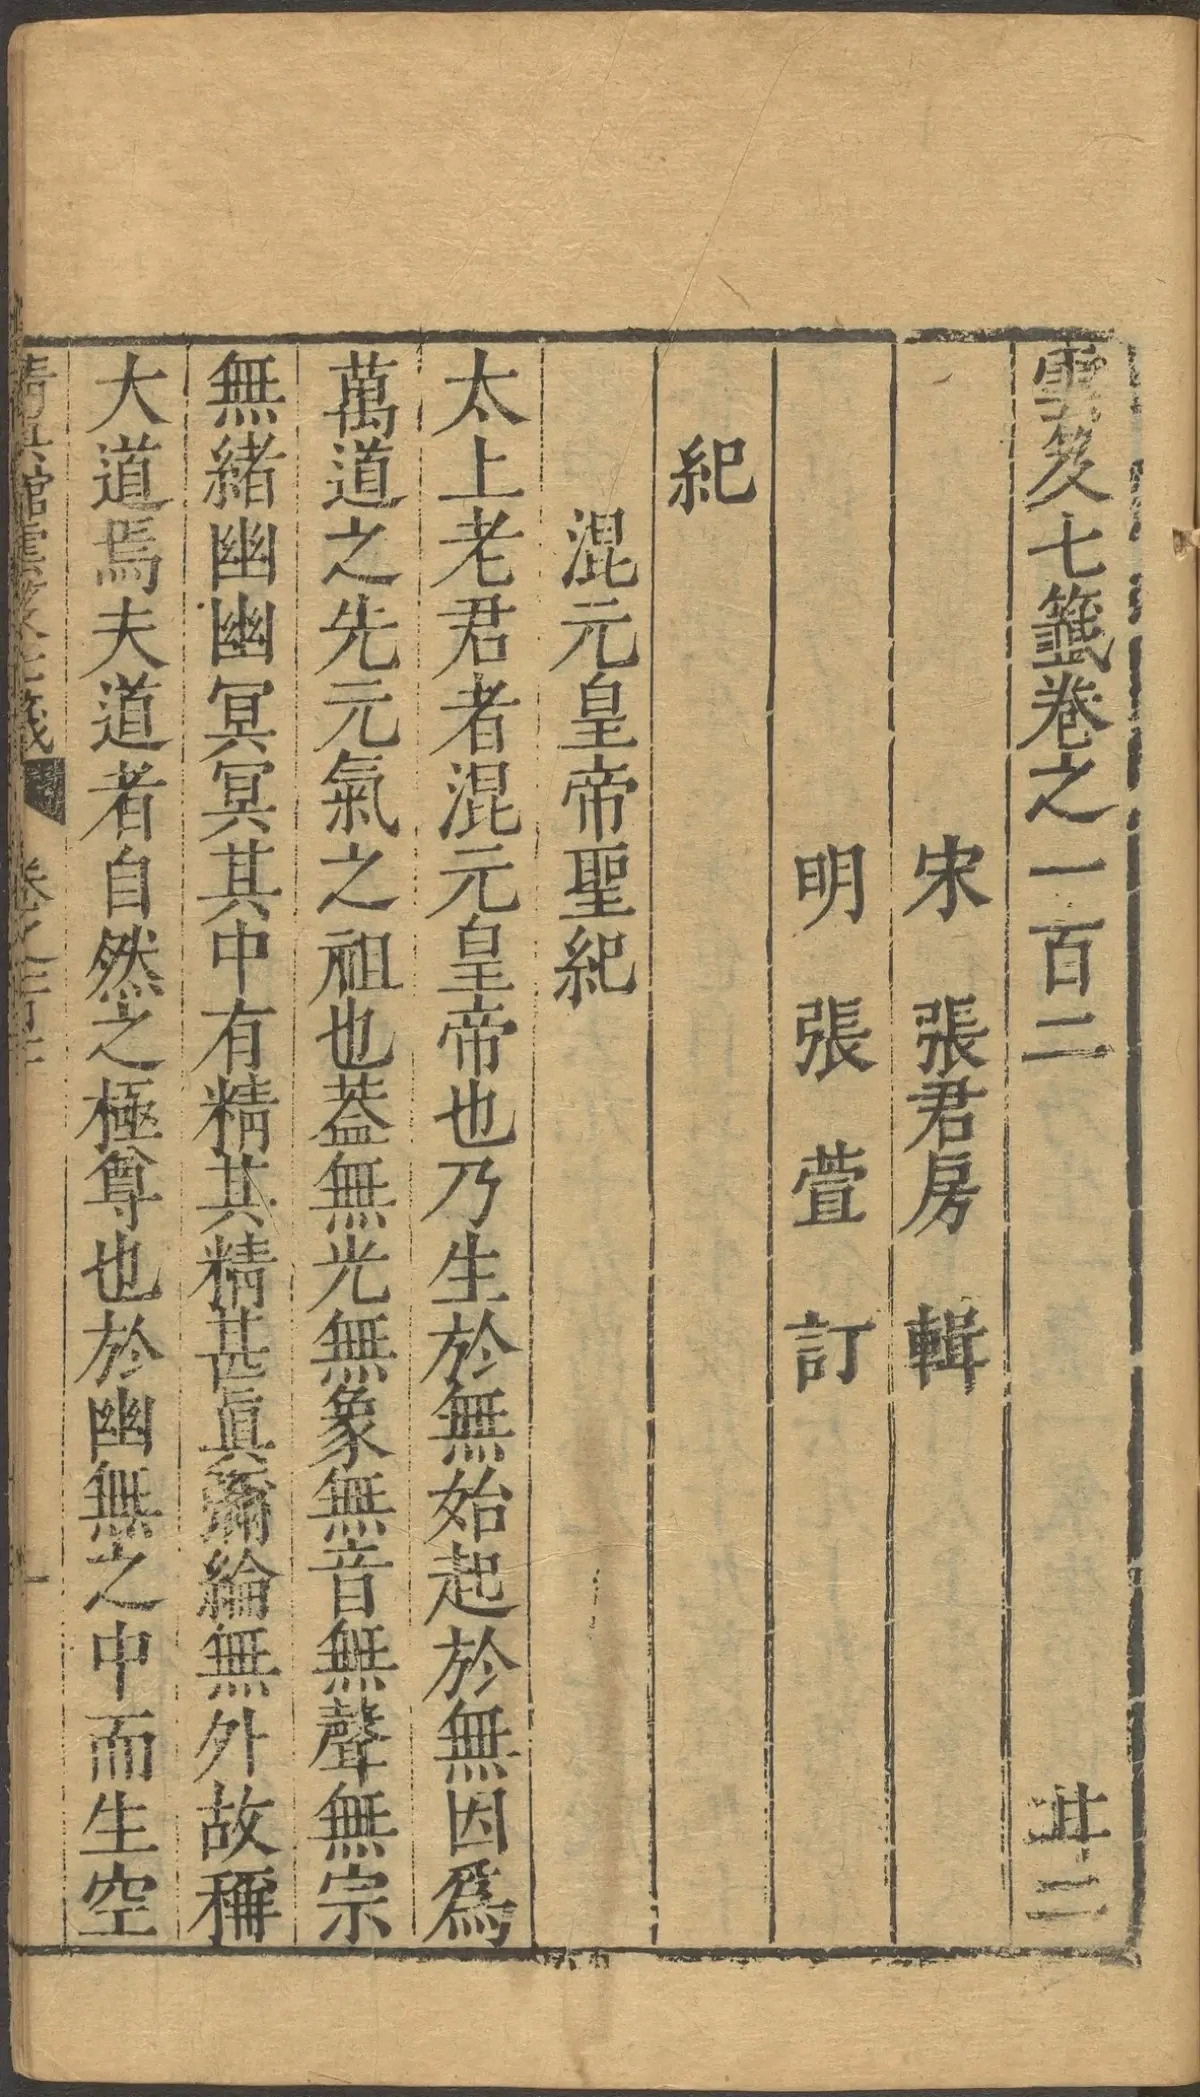 雲笈七籤卷之一百二 廿二
宋 張君房 輯
明 張萱 訂
紀
混元皇帝聖紀
太上老君者混元皇帝也乃生於無始起於無因爲
萬道之先元氣之祖也葢無光無象無音無聲無宗
無緒幽幽冥冥其中有精其精甚眞彌綸無外故稱
大道焉夫道者自然之極尊也於幽無之中而生空
清真館雲笈七籤 卷之一百二 一